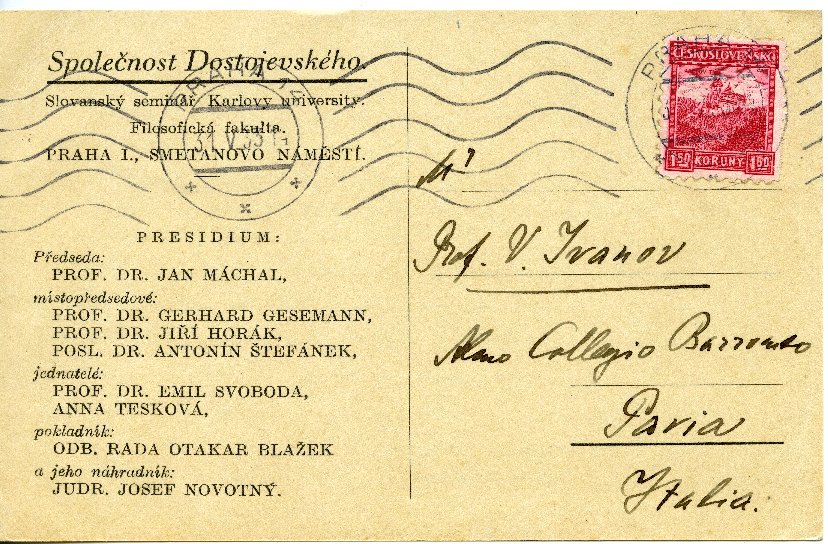 Společnost Dostojevského.
Slovanský seminář Karlovy university.
Filosofická fakulta.
PRAHA I., SMETANOVO NÁMĚSTÍ.
PRESIDIUM:
Předseda:
PROF. DR. JAN MÁCHAL,
místopředsedové:
PROF. DR. GERHARD GESEMANN,
PROF. DR. JIŘÍ HORÁK,
POSL. DR. ANTONÍN ŠTEFÁNEK,
jednatelé:
PROF. DR. EMIL SVOBODA,
ANNA TESKOVÁ,
pokladník:
ODB. RADA OTAKAR BLAŽEK
a jeho náhradník:
JUDR. JOSEF NOVOTNÝ.
PRAHA
PRAHA
ČESKOSLOVENSKO
1.50 KORUNY 1.50
Mr
Prof. V. Ivanov
Almo Collegio Borromeo
Pavia
Italia.